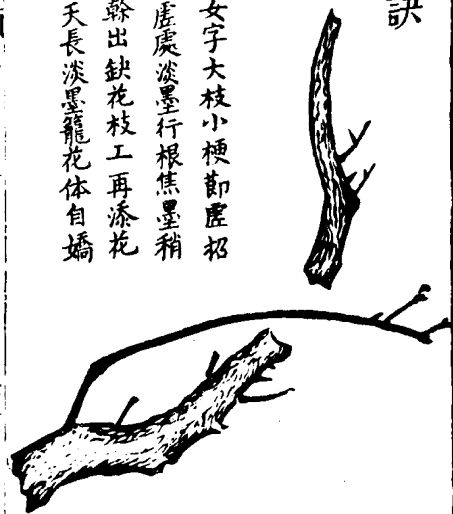 訣
女字大枝小梗節虛杇
虛處淡墨行根焦墨稍
榦出缺花枝工再添花
天長淡墨籠花体自嬌